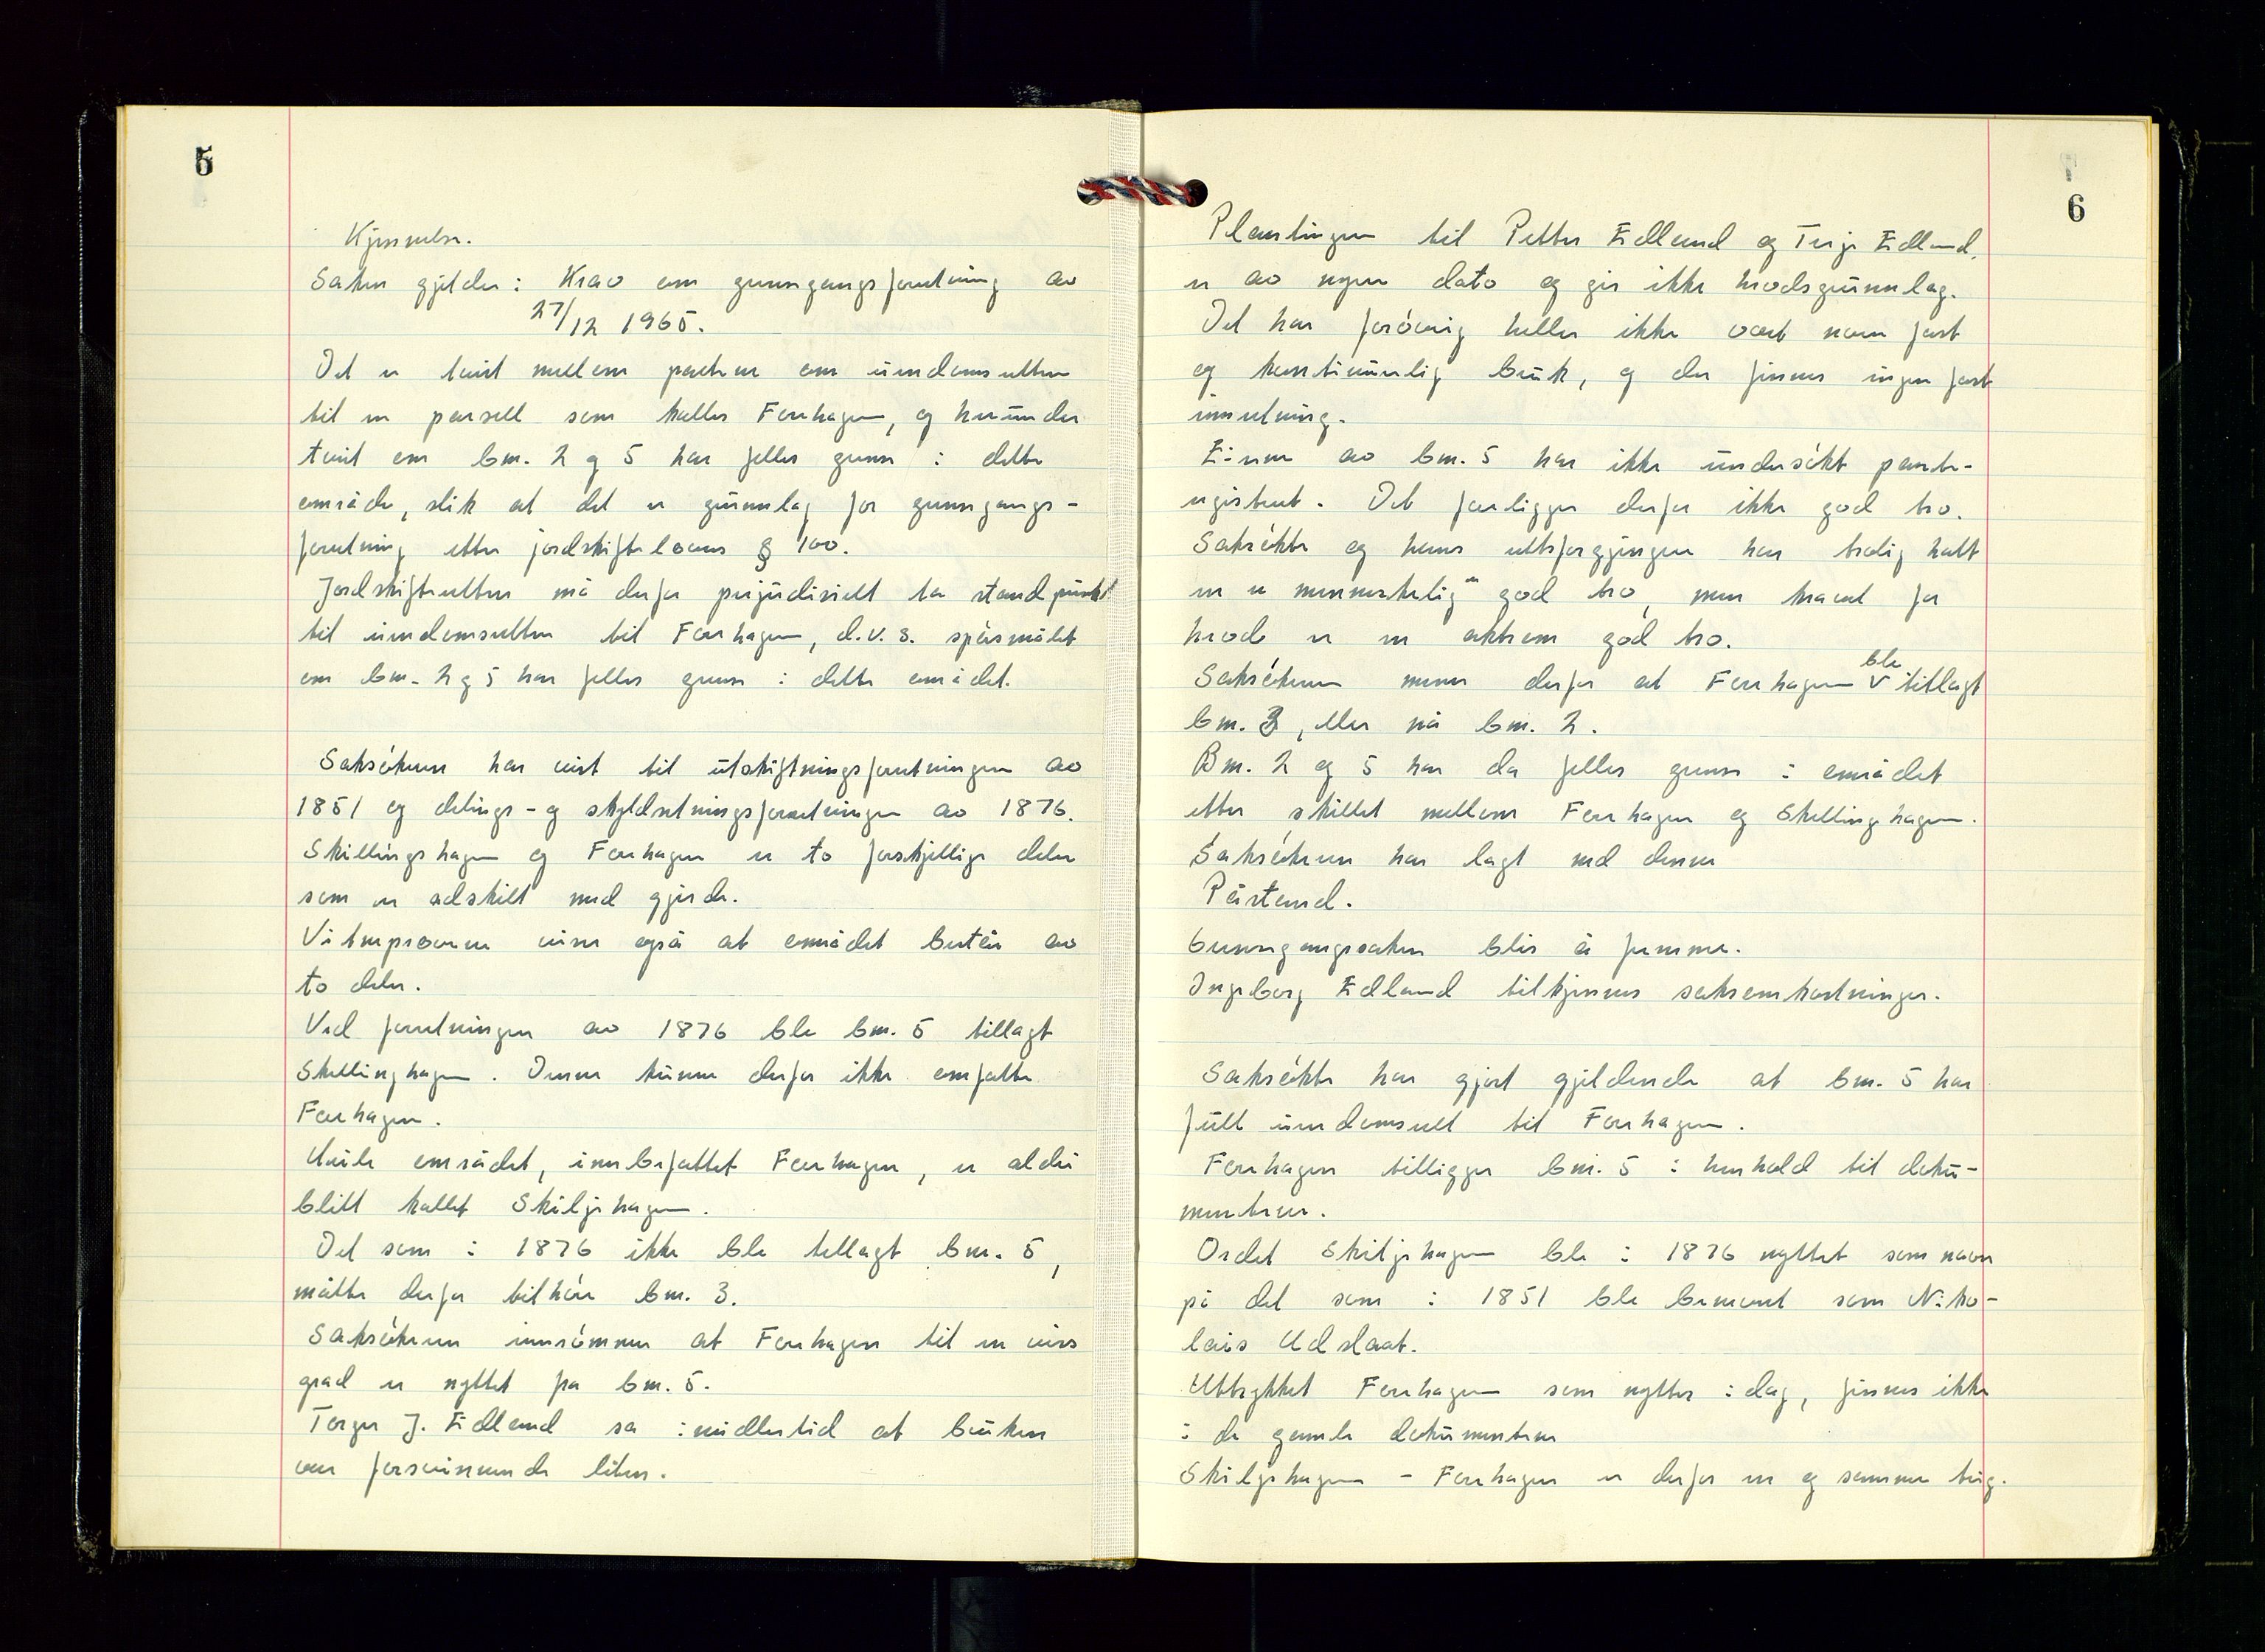 5
Kjennelse.
Saken gjelder: Krav om grensegangsforretning av
27/12 1965.
Det er tvist mellom partene om eiendomsretten
til en parsell som kalles Forrhagen, og herunder
tvist om bnr. 2 og 5 har felles grense i dette
område, slik at det er grunnlag for grensegangs-
forretning etter jordskiftelovens § 100.
Jordskifteretten må derfor prejudisielt ta standpunkt
til eiendomsretten til Forrhagen, d.v.s. spørsmålet
om bnr. 2 og 5 har felles grense i dette området.
Saksøkeren har vist til utskiftningsforretningen av
1851 og delings- og skyldsetningsforretningen av 1876.
Skillingshagen og Forrhagen er to forskjellige deler
som er adskilt med gjerde.
Vitneprovene viser også at området består av
to deler.
Ved forretningen av 1876 ble bnr. 5 tillagt
Skellinghagen. Denne kunne derfor ikke omfatte
Forrhagen.
Hele området, innbefattet Forrhagen, er aldri
blitt kallet Skiljehagen.
Det som i 1876 ikke ble tillagt bnr. 5,
måtte derfor tilhøre bnr. 3.
Saksøkeren innrømmer at Forrhagen til en viss
grad er nyttet fra bnr. 5.
Torger J. Edland sa imidlertid at bruken
var forsvinnende liten.
6
Plantingen til Petter Edland og Terje Edland,
er av nyere dato og gir ikke hevdsgrunnlag.
Det har forøvrig heller ikke vært noen fast
og kontinuerlig bruk, og der finnes ingen fast
innretning.
Eierne av bnr. 5 har ikke undersøkt pante-
registeret. Det foreligger derfor ikke god tro.
Saksøkte og hans rettsforgjengere har trolig hatt
en "menneskelig" god tro, men kravet for
hevd er en aktsom god tro.
Saksøkeren mener derfor at Forrhagen ble tillagt
bnr. 3, eller nå bnr. 2.
Bnr. 2 og 5 har da felles grense i området
etter skillet mellom Forrhagen og Skellinghagen.
Saksøkeren har lagt ned denne
Påstand.
Grensegangssaken blir å fremme.
Ingeborg Edland tilkjennes saksomkostninger.
Saksøkte har gjort gjeldende at bnr. 5 har
full eiendomsrett til Forrhagen.
Forrhagen tilligger bnr. 5 i henhold til doku-
mentene.
Ordet Skiljehagen ble i 1876 nyttet som navn
på det som i 1851 ble benevnt som Niko-
lais Udslaat.
Uttrykket Forrhagen som nyttes i dag, finnes ikke
i de gamle dokumentene
Skiljehagen - Forrhagen er derfor en og samme ting.